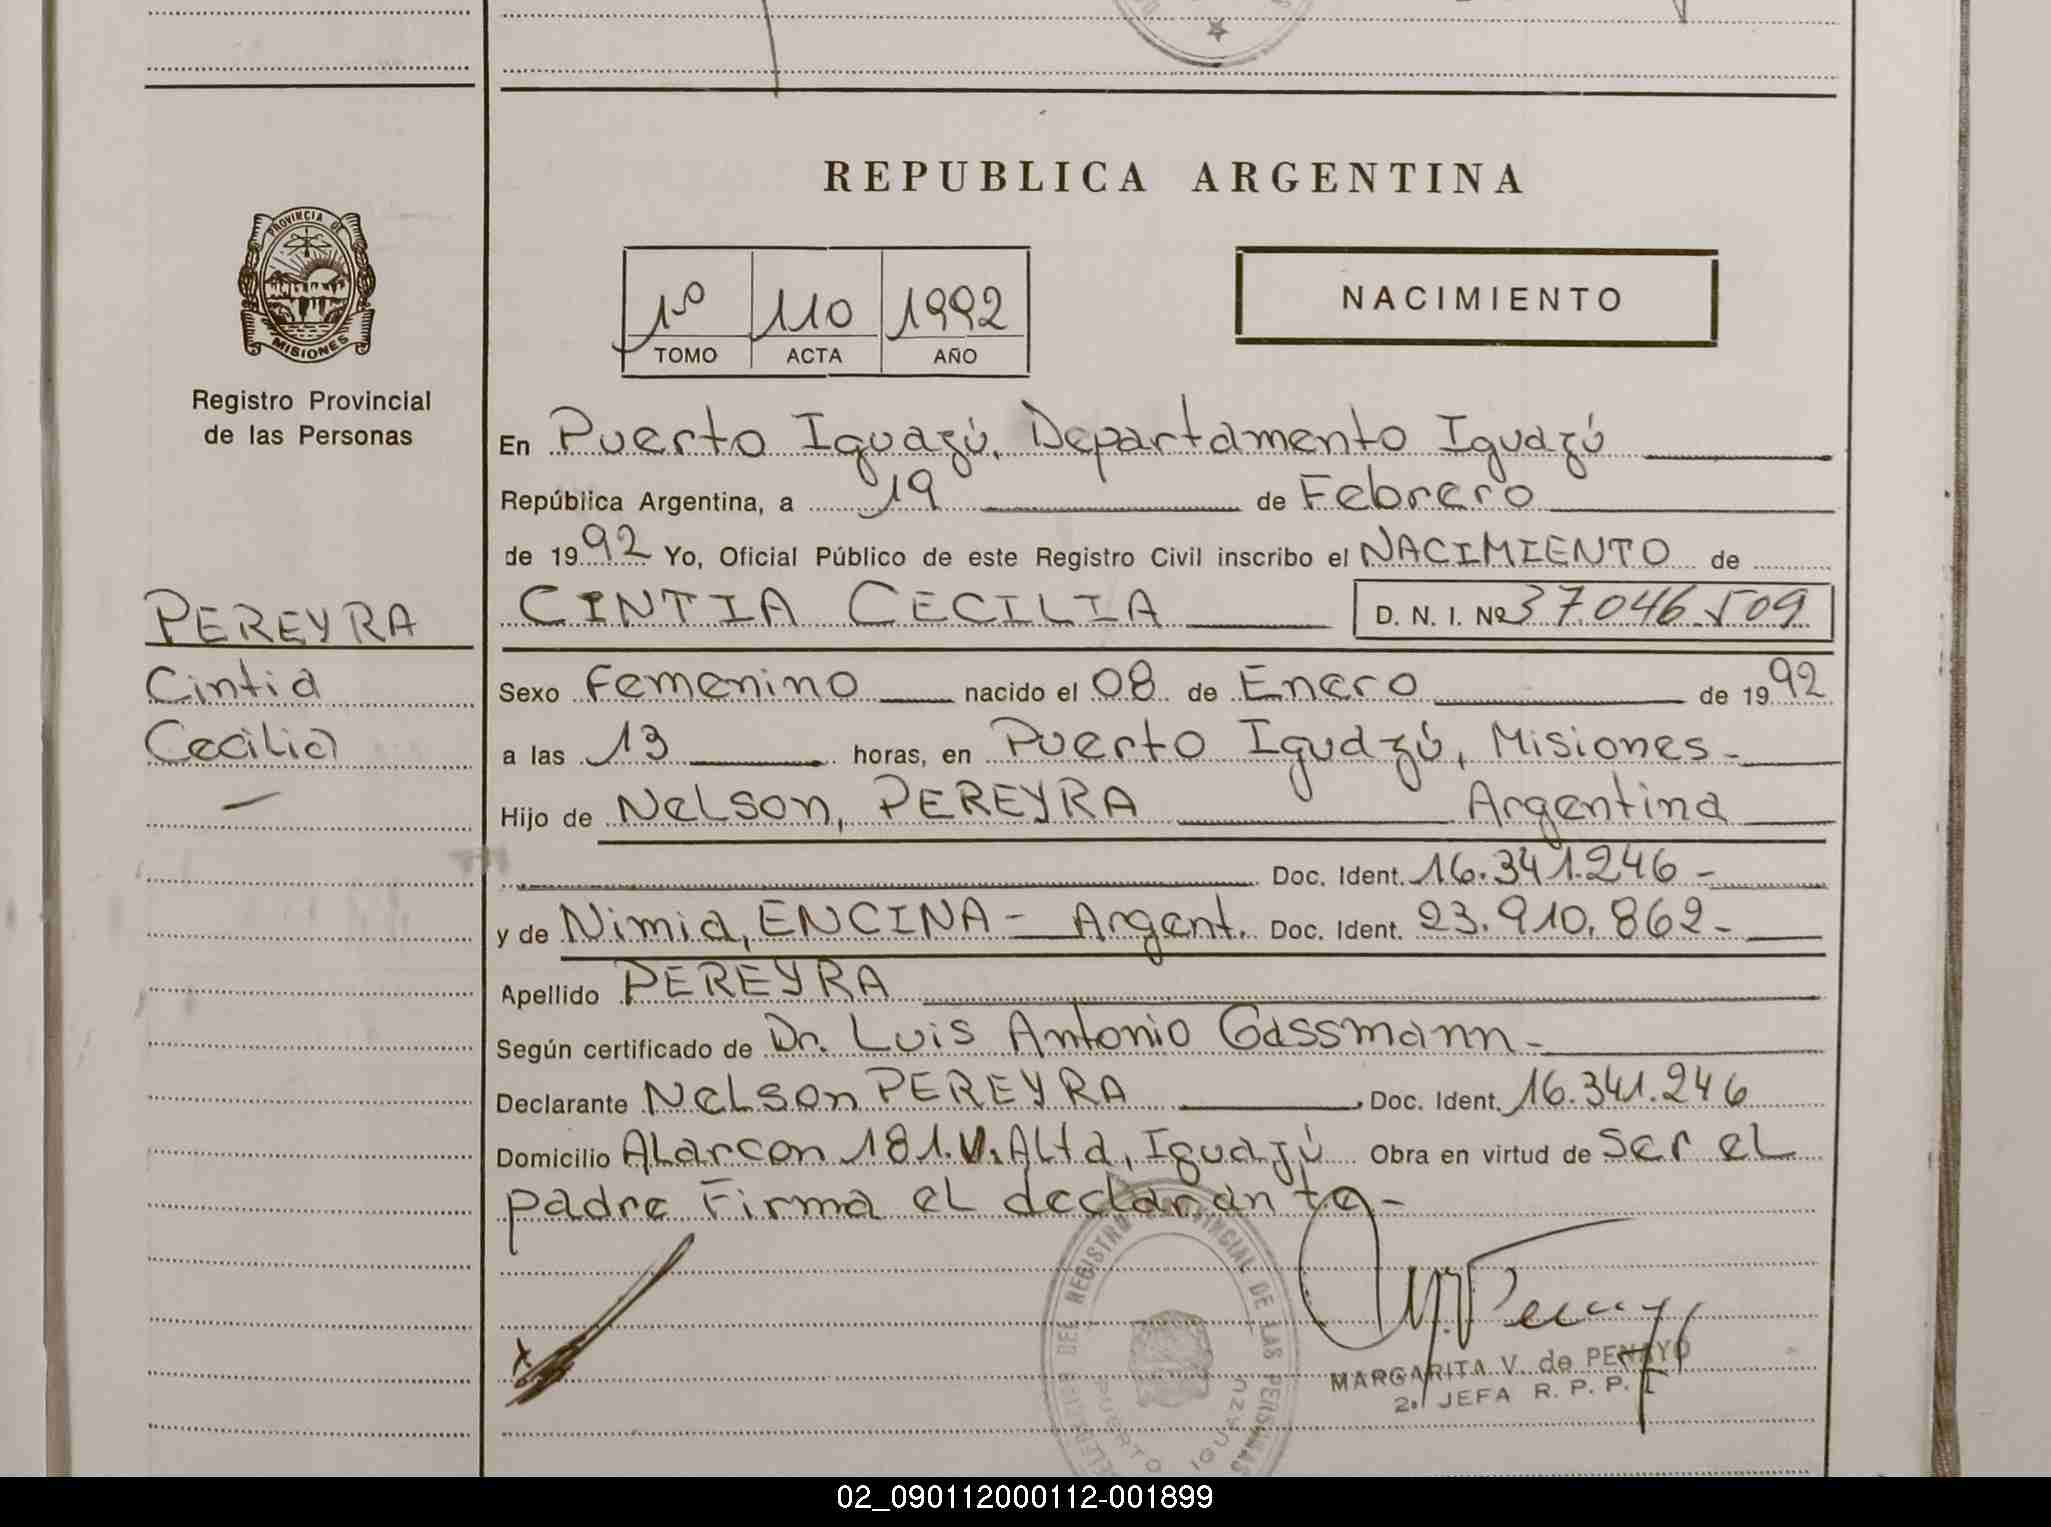 REPUBLICA ARGENTINA
PROVINCIA DE
MISIONES
Registro Provincial
de las Personas
1º 110 1992
TOMO ACTA AÑO
NACIMIENTO
En Puerto Iguazú, Departamento Iguazú
República Argentina, a 19 de Febrero
de 1992 Yo, Oficial Público de este Registro Civil inscribo el NACIMIENTO de
PEREYRA
CINTIA CECILIA D. N. I. Nº 37.046.509
Cintia
Cecilia
Sexo Femenino nacido el 08 de Enero de 1992
a las 13 horas, en Puerto Iguazú, Misiones-
Hijo de Nelson, PEREYRA Argentina
Doc. Ident. 16.341.246 -
y de Nimia, ENCINA - Argent. Doc. Ident. 23.910.862-
Apellido PEREYRA
Según certificado de Dr. Luis Antonio Gassmann-
Declarante Nelson PEREYRA Doc. Ident. 16.341.246
Domicilio Alarcon 181.V.Alta, Iguazú Obra en virtud de ser el
padre Firma el declarante-
DEL REGISTRO PROVINCIAL DE LAS PERSONAS
PUERTO IGUAZU
MARGARITA V. de PENAYO
2. JEFA R. P. P.
02_090112000112-001899